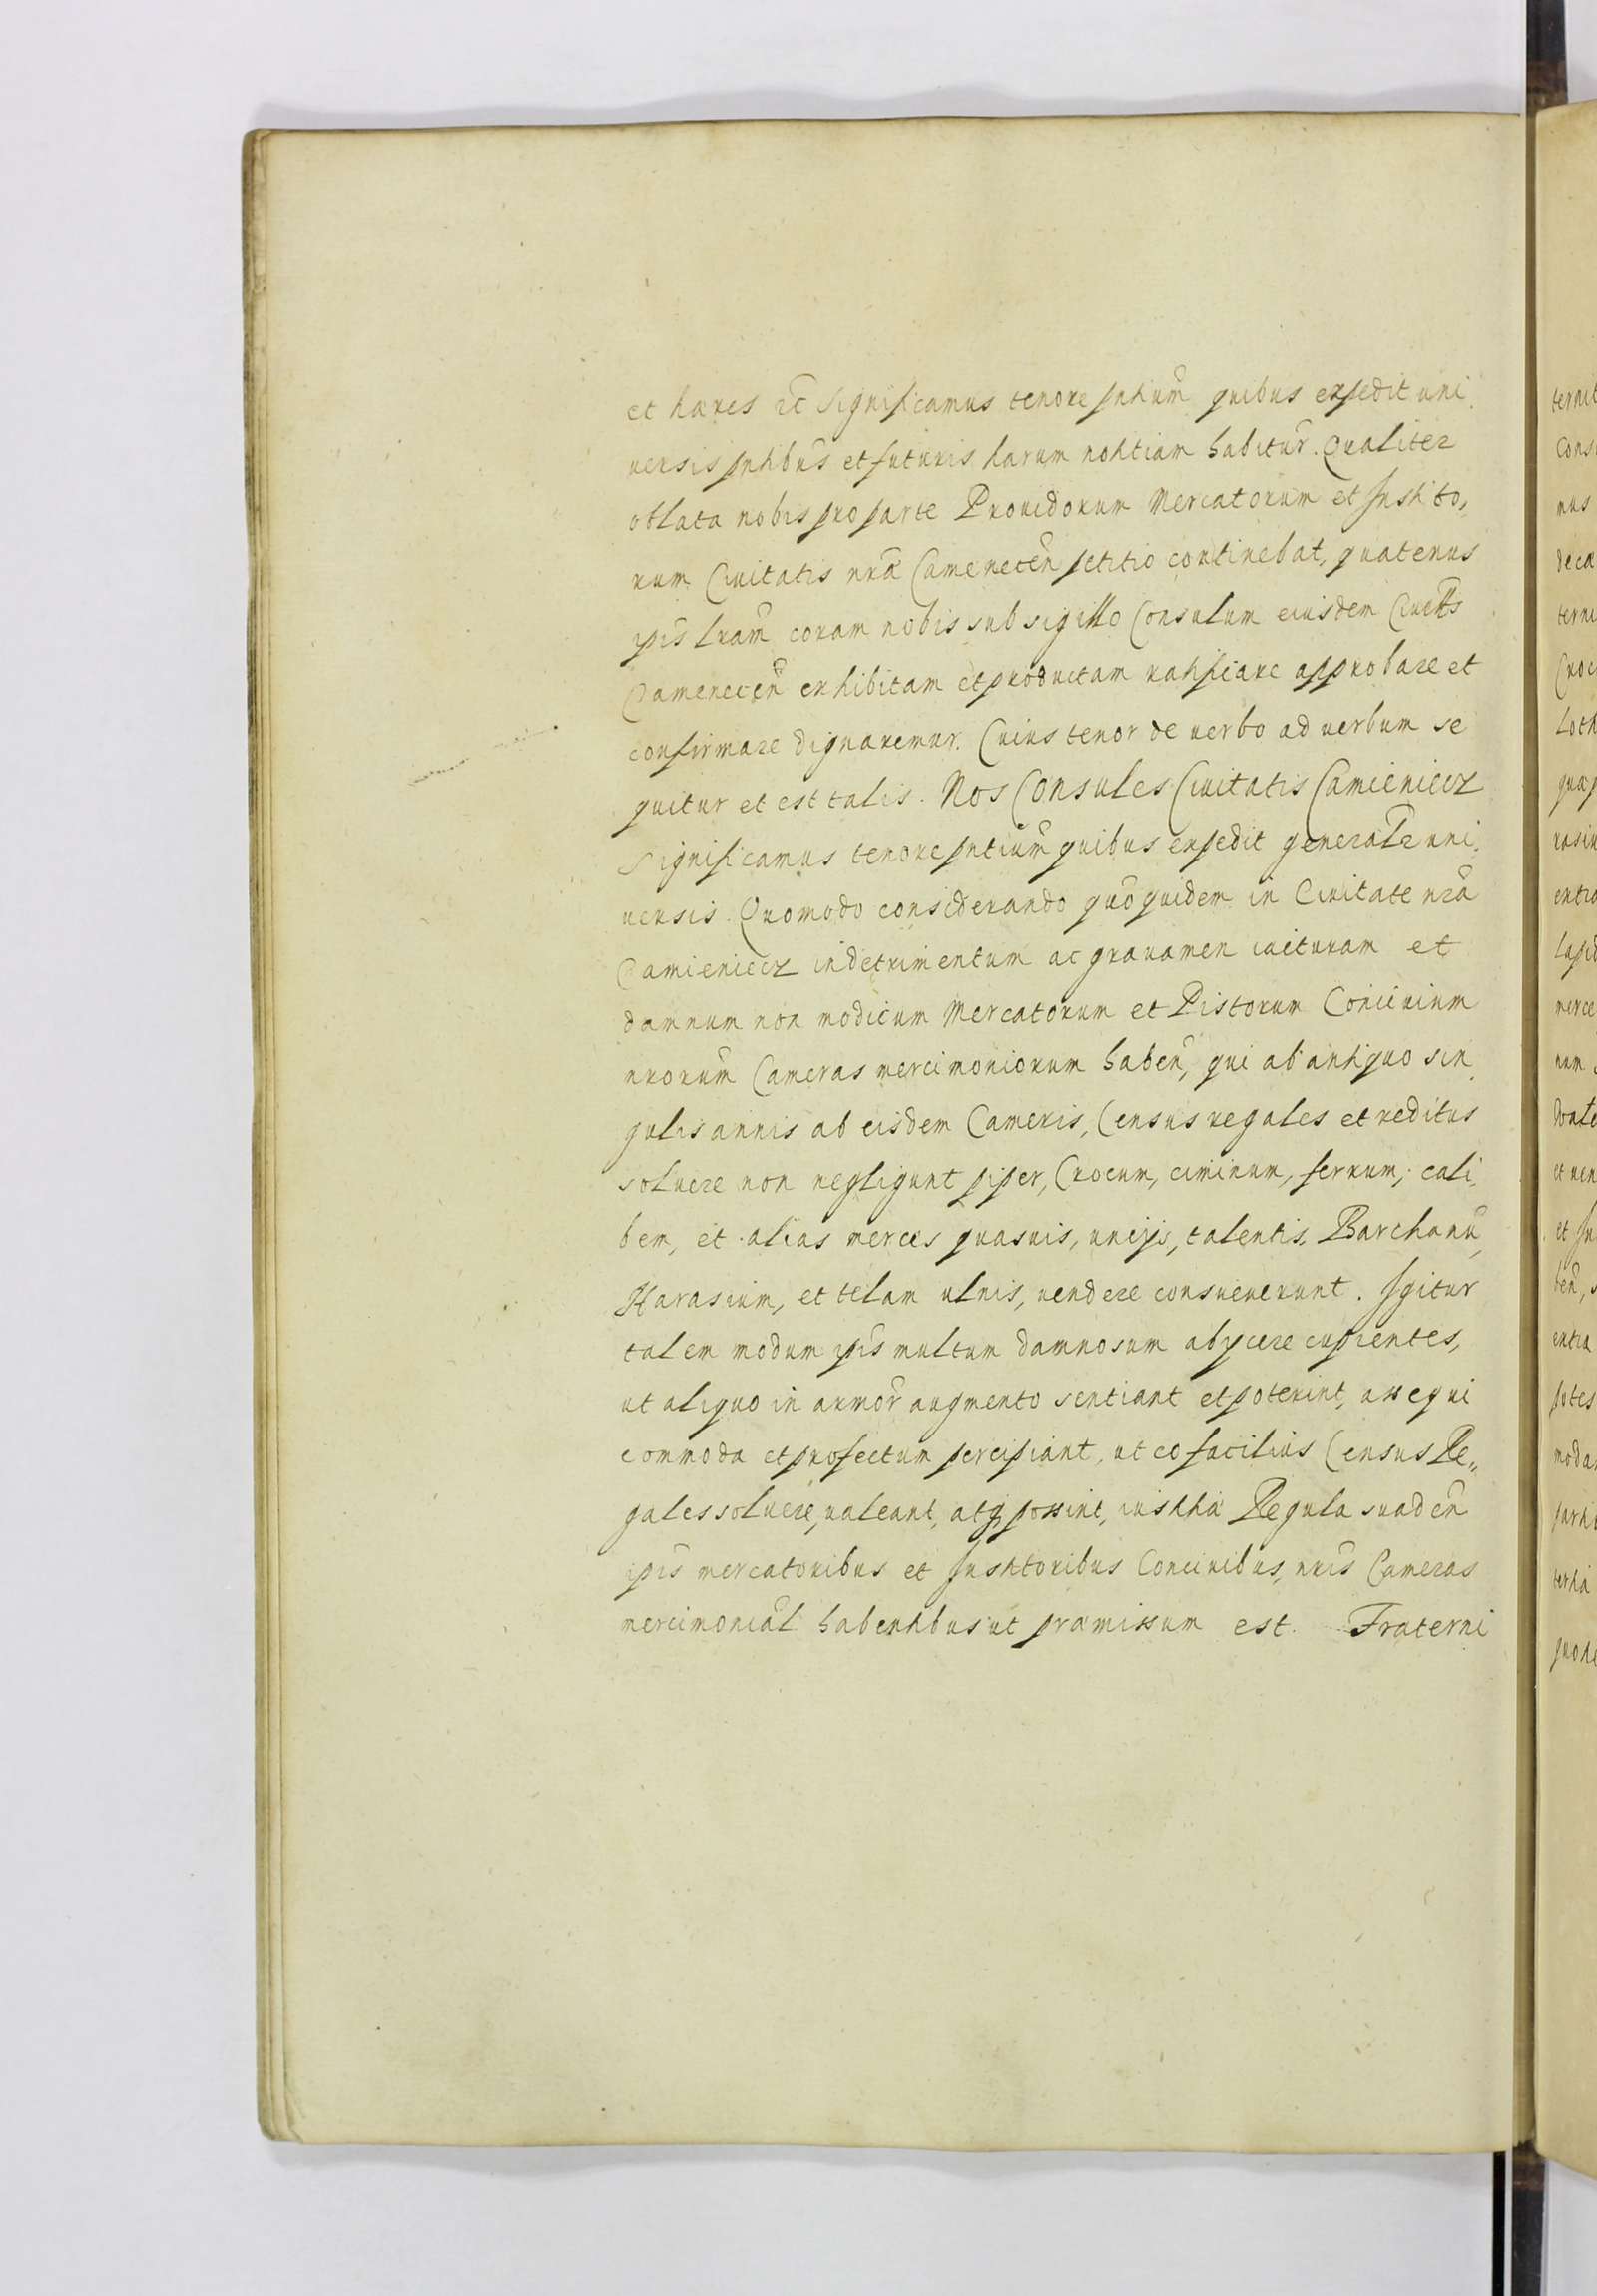 et hæres etc Significamus tenore pntium quibus expedit uni
uersis pntibus et futuris harum notitiam habitur. Qualiter
oblata nobis pro parte Prouidorum Mercatorum et Instito,
rum Ciuitatis nrã Camenecen petitio continebat, quatenus
ipis lram coram nobis sub sigillo Consulum eiusdem Ciuitts
Camenecen exhibitam et productam ratificare approbare et
confirmare dignaremur. Cuius tenor de uerbo ad uerbum se
quitur et est talis. Nos Consules Ciuitatis Camieniecz
Significamus tenore pntium quibus expedit generalr uni
uersis. Quomodo considerando quõ quidem in Ciuitate nrã
Camieniecz in detrimentum ac grauamen iacturam et
damnum non modicum Mercatorum et Pistorum Conciuium
nrorum Cameras mercimoniorum haben, qui ab antiquo sin
gulis annis ab eisdem Cameris, Census regales et reditus
soluere non negligunt piper, Crocum, ciminum, ferrum, cali
bem, et alias merces quasuis, uncijs, talentis, Barchanũ,
Harasium, et telam ulnis, uendere consueuerunt. Igitur
talem modum ipis multum damnosum abijcere cupientes,
ut aliquo in armor augmento sentiant et poterint, assequi
commoda et profectum percipiant, ut eo facilius Census Re„
gales soluere, ualeant, atq possint, iustitia Regula suaden
ipis mercatoribus et Institoribus Conciuibus, nris Cameras
mercimonial habentibus ut præmissum est. Fraterni